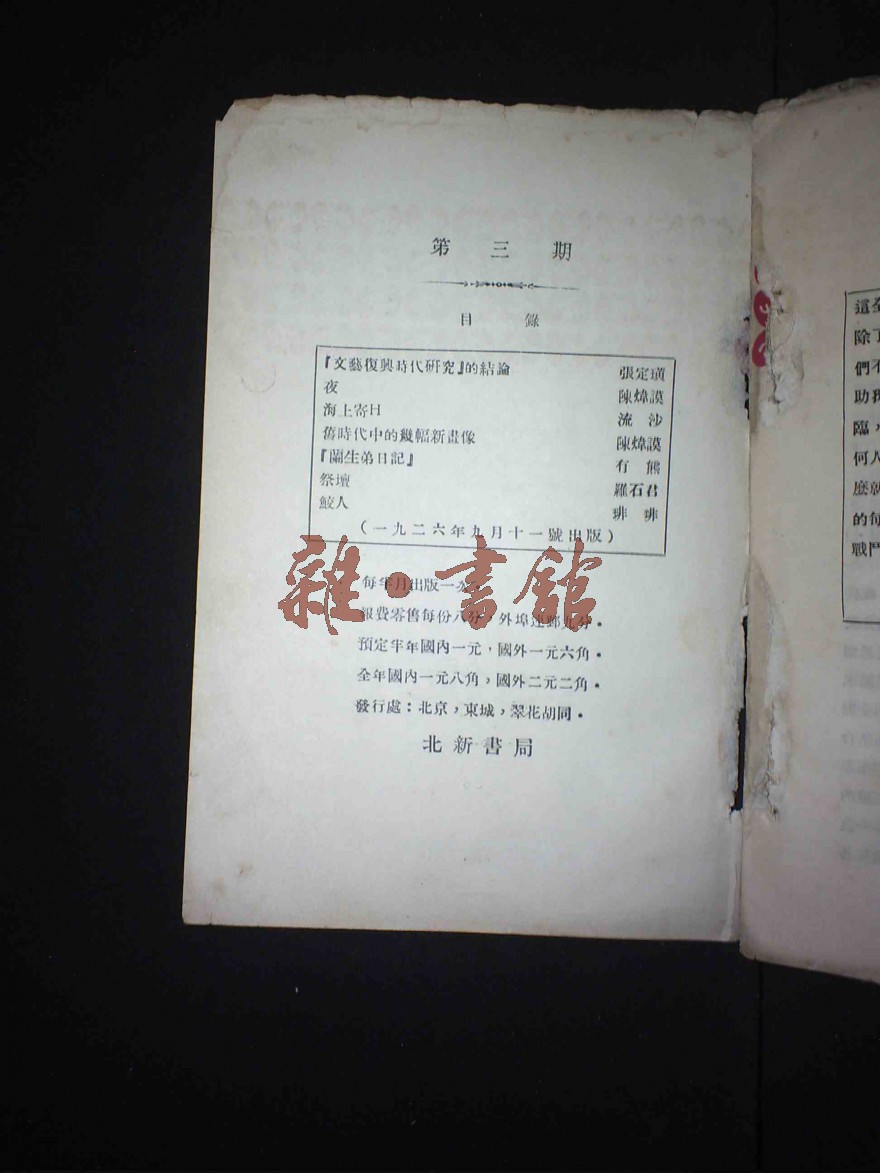 第三期
目錄
『文藝復興時代研究』的結論 張定璜
夜 陳煒謨
海上寄日 流沙
舊時代中的幾幅新畫像 陳煒謨
『蘭生弟日記』 有熊
祭壇 羅石君
鮫人 琲琲
(一九二六年九月十一號出版)
每半月出版一次。
報費零售每份八分,外埠連郵九分。
預定半年國內一元,國外一元六角。
全年國內一元八角,國外二元二角。
發行處:北京,東城,翠花胡同。
北新書局
雜·書館
這
除
們不
助我
臨,
何人
麽就
的每
戰鬥